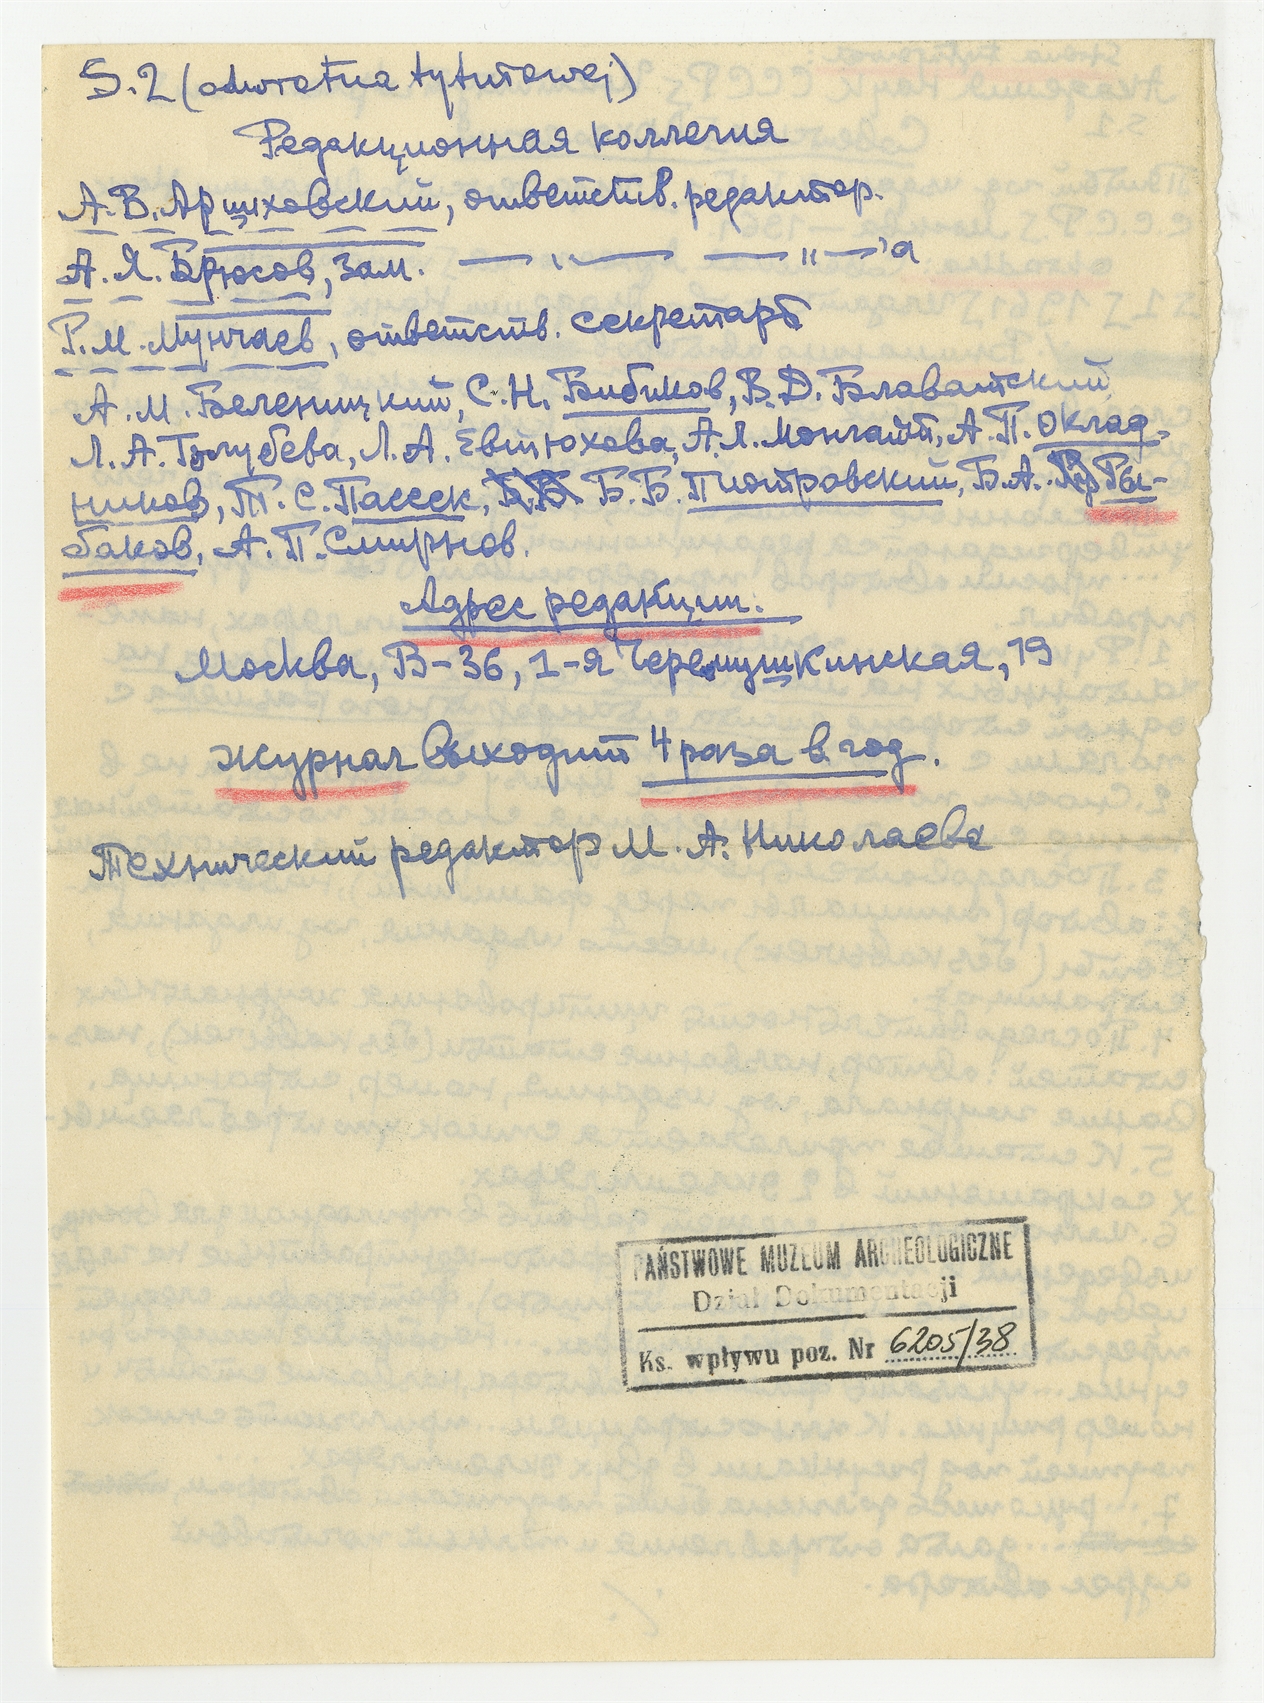 S.2 (odwrotna tytułowej)
Редакционная коллегия
А. В. Арциховский, ответств. редактор.
А. Я. Брюсов, зам. — „ — — „ —'а
Р. М. Мунчаев, ответств. секретарь
А. М. Беленицкий, С. Н. Бибиков, В. Д. Блаватский,
Л. А. Голубева, Л. А. Евтюхова, А. Л. Монгайт, А. П. Оклад-
ников, Т. С. Пассек, Б. Б. Пиотровский, Б. А. Ры-
баков, А. П. Смирнов.
Адрес редакции:
Москва, В-36, 1-я Черемушкинская, 19
Журнал выходит 4 раза в год.
Технический редактор М. А. Николаева
PAŃSTWOWE MUZEUM ARCHEOLOGICZNE
Dział Dokumentacji
Ks. wpływu poz. Nr 6205/38